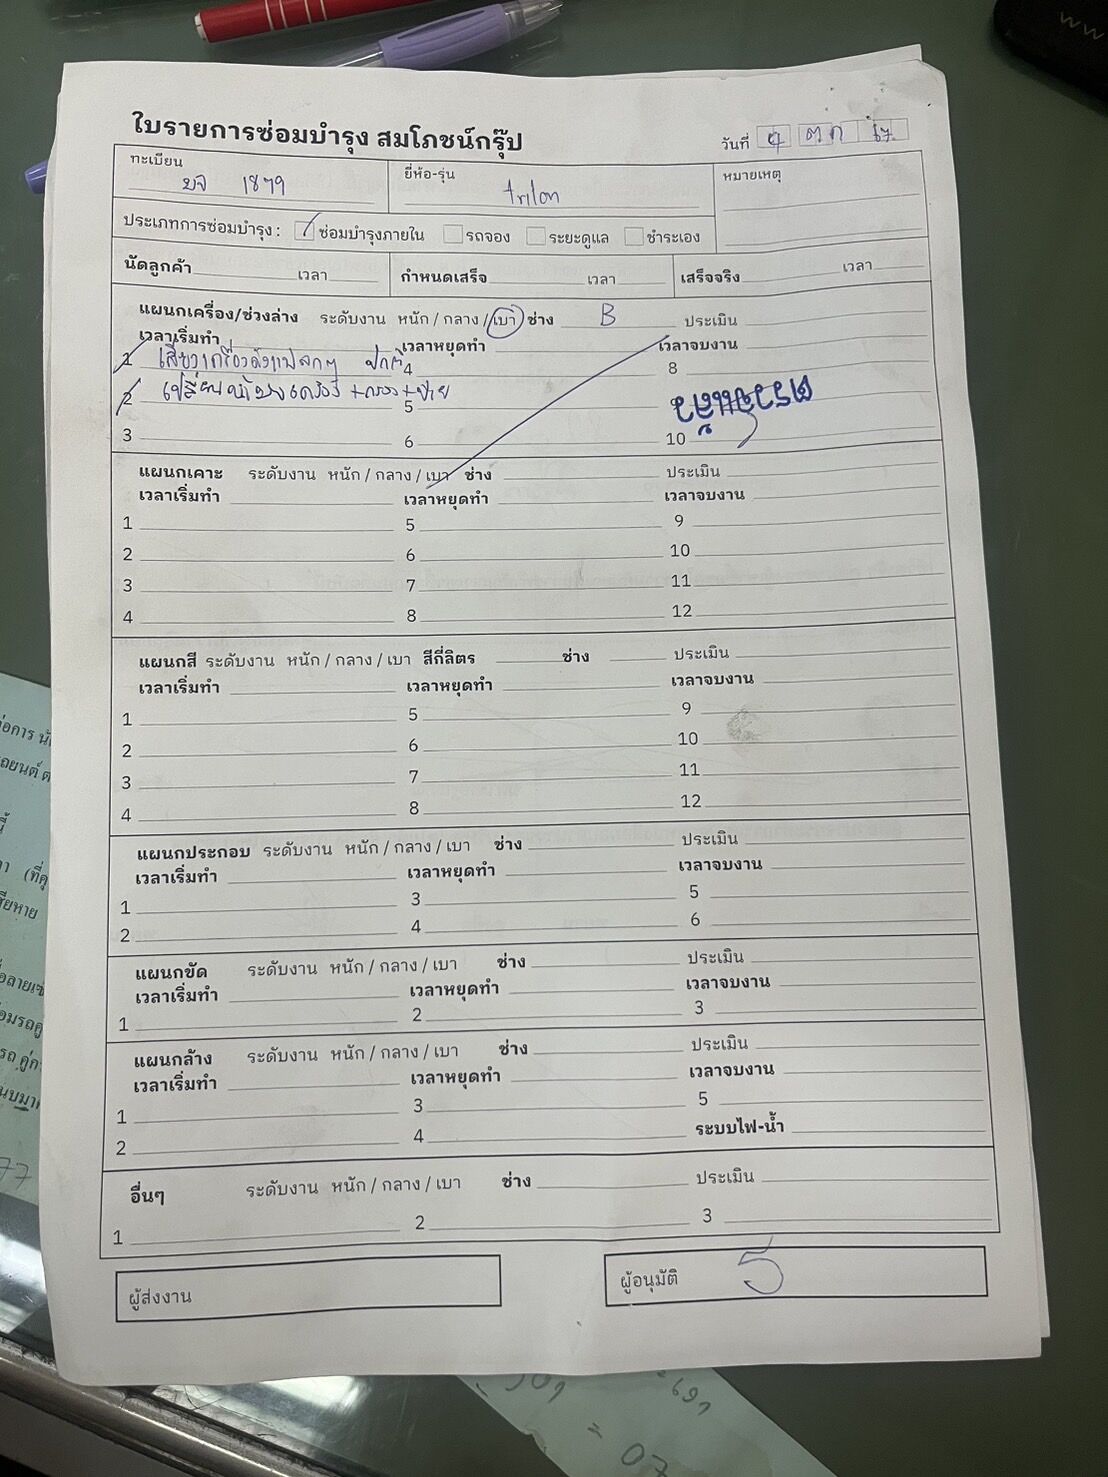 ใบรายการซ่อมบำรุง สมโภชน์กรุ๊ป
วันที่ 4 ตค 67
ทะเบียน บจ 1879
ยี่ห้อ-รุ่น triton
หมายเหตุ
ประเภทการซ่อมบำรุง : ซ่อมบำรุงภายใน รถจอง ระยะดูแล ชำระเอง
นัดลูกค้า เวลา กำหนดเสร็จ เวลา เสร็จจริง เวลา
แผนกเครื่อง/ช่วงล่าง ระดับงาน หนัก / กลาง / เบา ช่าง B ประเมิน
เวลาเริ่มทำ เวลาหยุดทำ เวลาจบงาน
1 เสียงเครื่องดังแปลกๆ ปกติ 4 8
2 เปลี่ยนน้ำมันเครื่อง+กรอง+ป้าย 5 ตรวจแล้ว
3 6 10
แผนกเคาะ ระดับงาน หนัก / กลาง / เบา ช่าง ประเมิน
เวลาเริ่มทำ เวลาหยุดทำ เวลาจบงาน
1 5 9
2 6 10
3 7 11
4 8 12
แผนกสี ระดับงาน หนัก / กลาง / เบา สีกี่ลิตร ช่าง ประเมิน
เวลาเริ่มทำ เวลาหยุดทำ เวลาจบงาน
1 5 9
2 6 10
3 7 11
4 8 12
แผนกประกอบ ระดับงาน หนัก / กลาง / เบา ช่าง ประเมิน
เวลาเริ่มทำ เวลาหยุดทำ เวลาจบงาน
1 3 5
2 4 6
แผนกขัด ระดับงาน หนัก / กลาง / เบา ช่าง ประเมิน
เวลาเริ่มทำ เวลาหยุดทำ เวลาจบงาน
1 2 3
แผนกล้าง ระดับงาน หนัก / กลาง / เบา ช่าง ประเมิน
เวลาเริ่มทำ เวลาหยุดทำ เวลาจบงาน
1 3 5
2 4 ระบบไฟ-น้ำ
อื่นๆ ระดับงาน หนัก / กลาง / เบา ช่าง ประเมิน
1 2 3
ผู้ส่งงาน
ผู้อนุมัติ